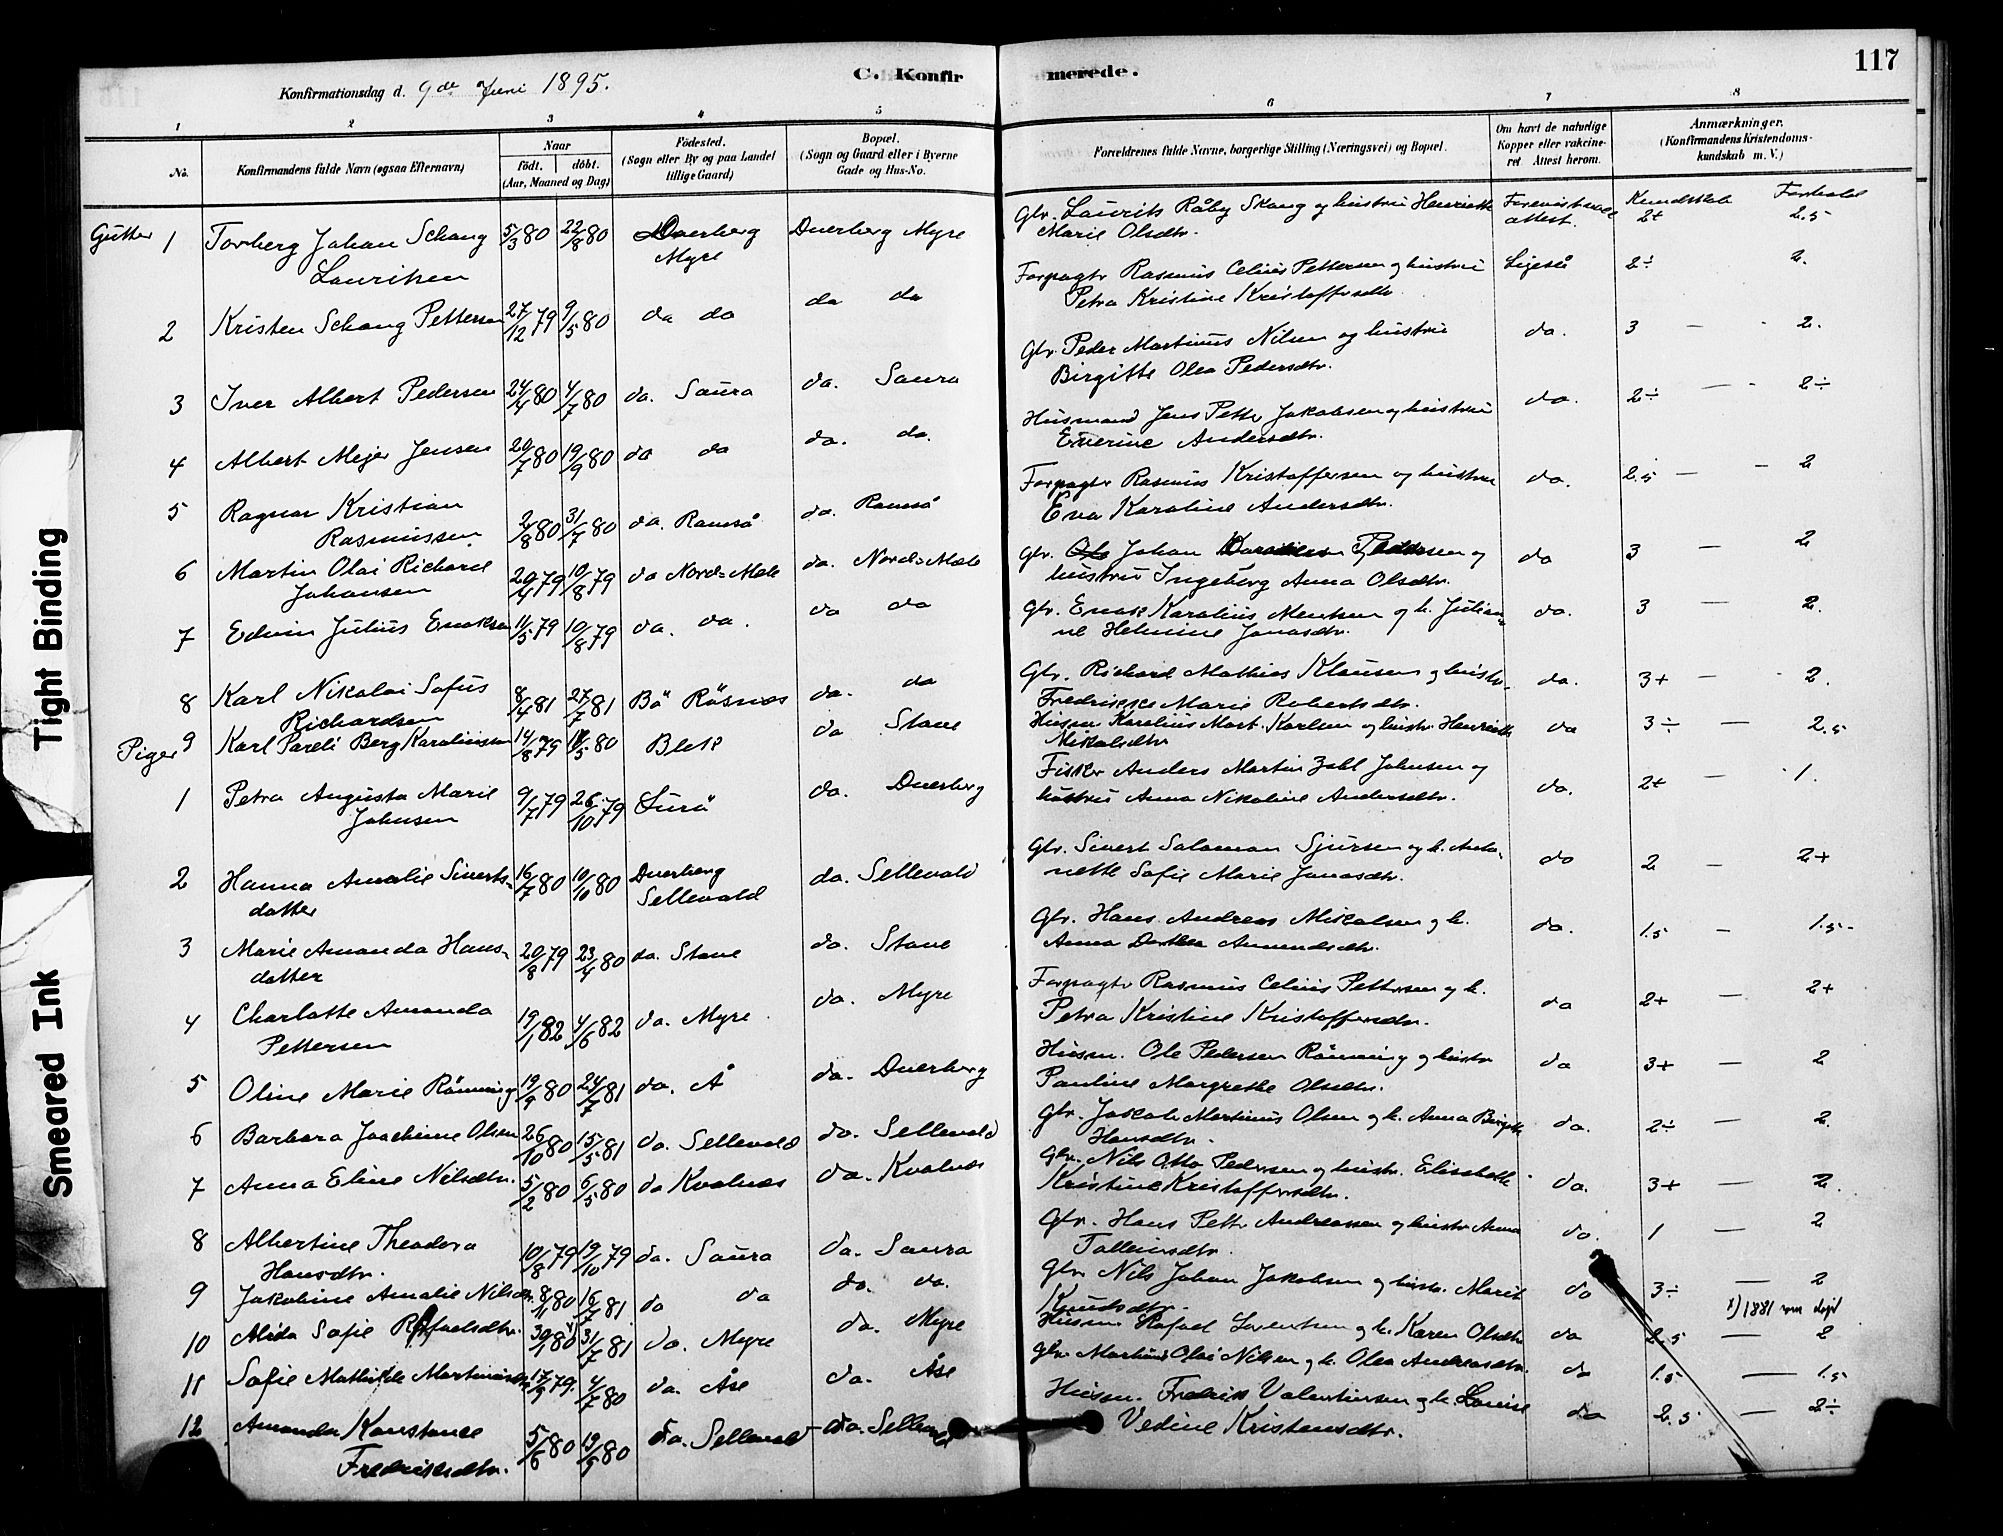 117
C. Konfirmerede.
Konfirmationsdag d. 9de Juni 1895.
1 2 3 4 5 6 7 8
No.
Konfirmandens fulde Navn (ogsaa Efternavn)
Naar
födt. döbt.
(Aar, Maaned og Dag)
Födested.
(Sogn eller By og paa Landet
tillige Gaard)
Bopæl.
(Sogn og Gaard eller i Byerne
Gade og Hus-No.
Forældrenes fulde Navne, borgerlige Stilling (Næringsvei) og Bopæl.
Om havt de naturlige
Kopper eller vakcine-
ret. Attest herom.
Anmærkninger.
(Konfirmandens Kristendoms-
kundskab m. V.)
Kundskab Forhold
Gutter 1 Torberg Johan Schang 5/3 80 22/8 80 Dverberg Dverberg Myre Gbr. Laurits Råby Skang og hustru Henriette attest. 2+ 2.5
Lauritsen Myre Marie Olsdtr.
2 Kristen Schang Pettersen 27/12 79 9/5 80 da do da do Forpagtr Rasmus Celius Pettersen og hustru Ligeså 2÷ 2.
Petra Kristine Kristoffersdtr.
3 Iver Albert Pedersen 24/4 80 4/7 80 da. Saura da. Saura Gbr. Peder Martinus Nilsen og hustru da. 3 — 2.
Birgitte Olea Pedersdtr.
4 Albert Mejer Jensen 20/7 80 19/9 80 da da da. da. Husmand Jens Petter Jakobsen og hustru da. 2÷ — 2÷
Andersdtr.
5 Ragnar Kristian 2/8 80 31/7 80 da. Ramså da. Ramså Forpagtr Rasmus Kristoffersen og hustru da. 2.5 — 2
Rasmussen. Eva Karoline Andersdtr.
6 Martin Olai Richard 20/4 79 10/8 79 da Nord-Mele da. Nord-Mele Gbr. Johan Pedersen og da 3 — 2
Johansen hustru Ingeborg Anna Olsdtr.
7 Edvin Julius Enoksen 11/5 79 10/8 79 da. da. da da Gbr. Enok Karolius Mentsen og h. Julian- da. 3 — 2.
ne Helmine Jonasdtr.
8 Karl Nikolai Sofus 8/4 81 27/7 81 Bö Røsnes da. da Gbr. Richard Mathias Klausen og hustr. da. 3+ — 2.
Richardsen Fredrikke Marie Robertsdtr.
9 Karl Pareli Berg Karoliussen 14/8 79 /5 80 Blek da Stave Husm. Karolius Mart. Karlsen og hustr. Henriette da 3÷ — 2.5
Mikalsdtr
Piger
1 Petra Augusta Marie 9/7 79 26/10 79 Lurö da. Dverberg Fisker Anders Martin Zahl Johnsen og da. 2+ — 1.
Johnsen hustru Anna Nikoline Andersdtr.
2 Hanna Amalie Siverts- 16/7 80 10/10 80 Dverberg da. Sellevold Gbr. Sivert Salamon Sjursen og h. Anto- do 2 — 2+
datter Sellevold nette Sofie Marie Jonasdtr.
3 Marie Amanda Hans- 20/8 79 23/4 80 da. Stave da. Stave Gbr. Hans Andreas Mikalsen og h. da. 1.5 — 1.5-
datter Anna Dorthea Amundsdtr.
4 Charlotte Amanda 19/1 82 4/6 82 da. Myre da. Myre Forpagtr Rasmus Celius Pettersen og h. da 2+ — 2+
Pettersen Petra Kristine Kristoffersdtr.
5 Oline Marie Rönning 19/9 80 24/7 81 da. Å da. Dverberg Husm. Ole Pedersen Rönning og hustr da 3+ — 2
Pauline Margrethe Olsdtr.
6 Barbara Joachime Olsen 26/10 80 15/5 81 da. Sellevold da. Sellevold Gbr. Jakob Martinus Olsen og h. Anna Birgitte da. 2÷ — 2.
Hansdtr.
7 Anna Eline Nilsdtr. 5/2 80 6/5 80 da Kvalnes da. Kvalnes Gbr. Nils Otto Pedersen og hustr. Elisabeth da. 3+ — 2.
Kristine Kristoffersdtr.
8 Albertine Theodora 10/8 79 19/10 79 da. Saura da. Saura Gbr. Hans Petter Andreassen og hustr Anna do. 1 — 2
Hansdtr. Tolleivsdtr.
9 Jakobine Amalie Nilsdtr. 8/1 80 16/7 81 da da da. da. Gbr Nils Johan Jakobsen og hustr. Marit do 3÷ — 2
Knudsdtr. x) 1881
10 Alida Sofie Rafaelsdtr. 30/1 80 x) 31/7 81 da. Myre da. Myre Husm Rafael Lorentsen og h. Karen Olsdtr da 2.5 — 2
11 Sofie Mathilde Martinusdtr 17/9 79. 4/7 80 da. Åse da. Åse Gbr Martinus Olai Nilsen og h. Olea Andreasdtr. do 1.5 — 1.5
12 Amanda Konstanse 5/6 80 19/9 80 da. Sellevold da. Sellevold Husm. Fredrik Valentinsen og h. Lovise da 2.5 — 2÷
Fredriksdtr. Vedine Kristensdtr.
Tight Binding
Smeared Ink